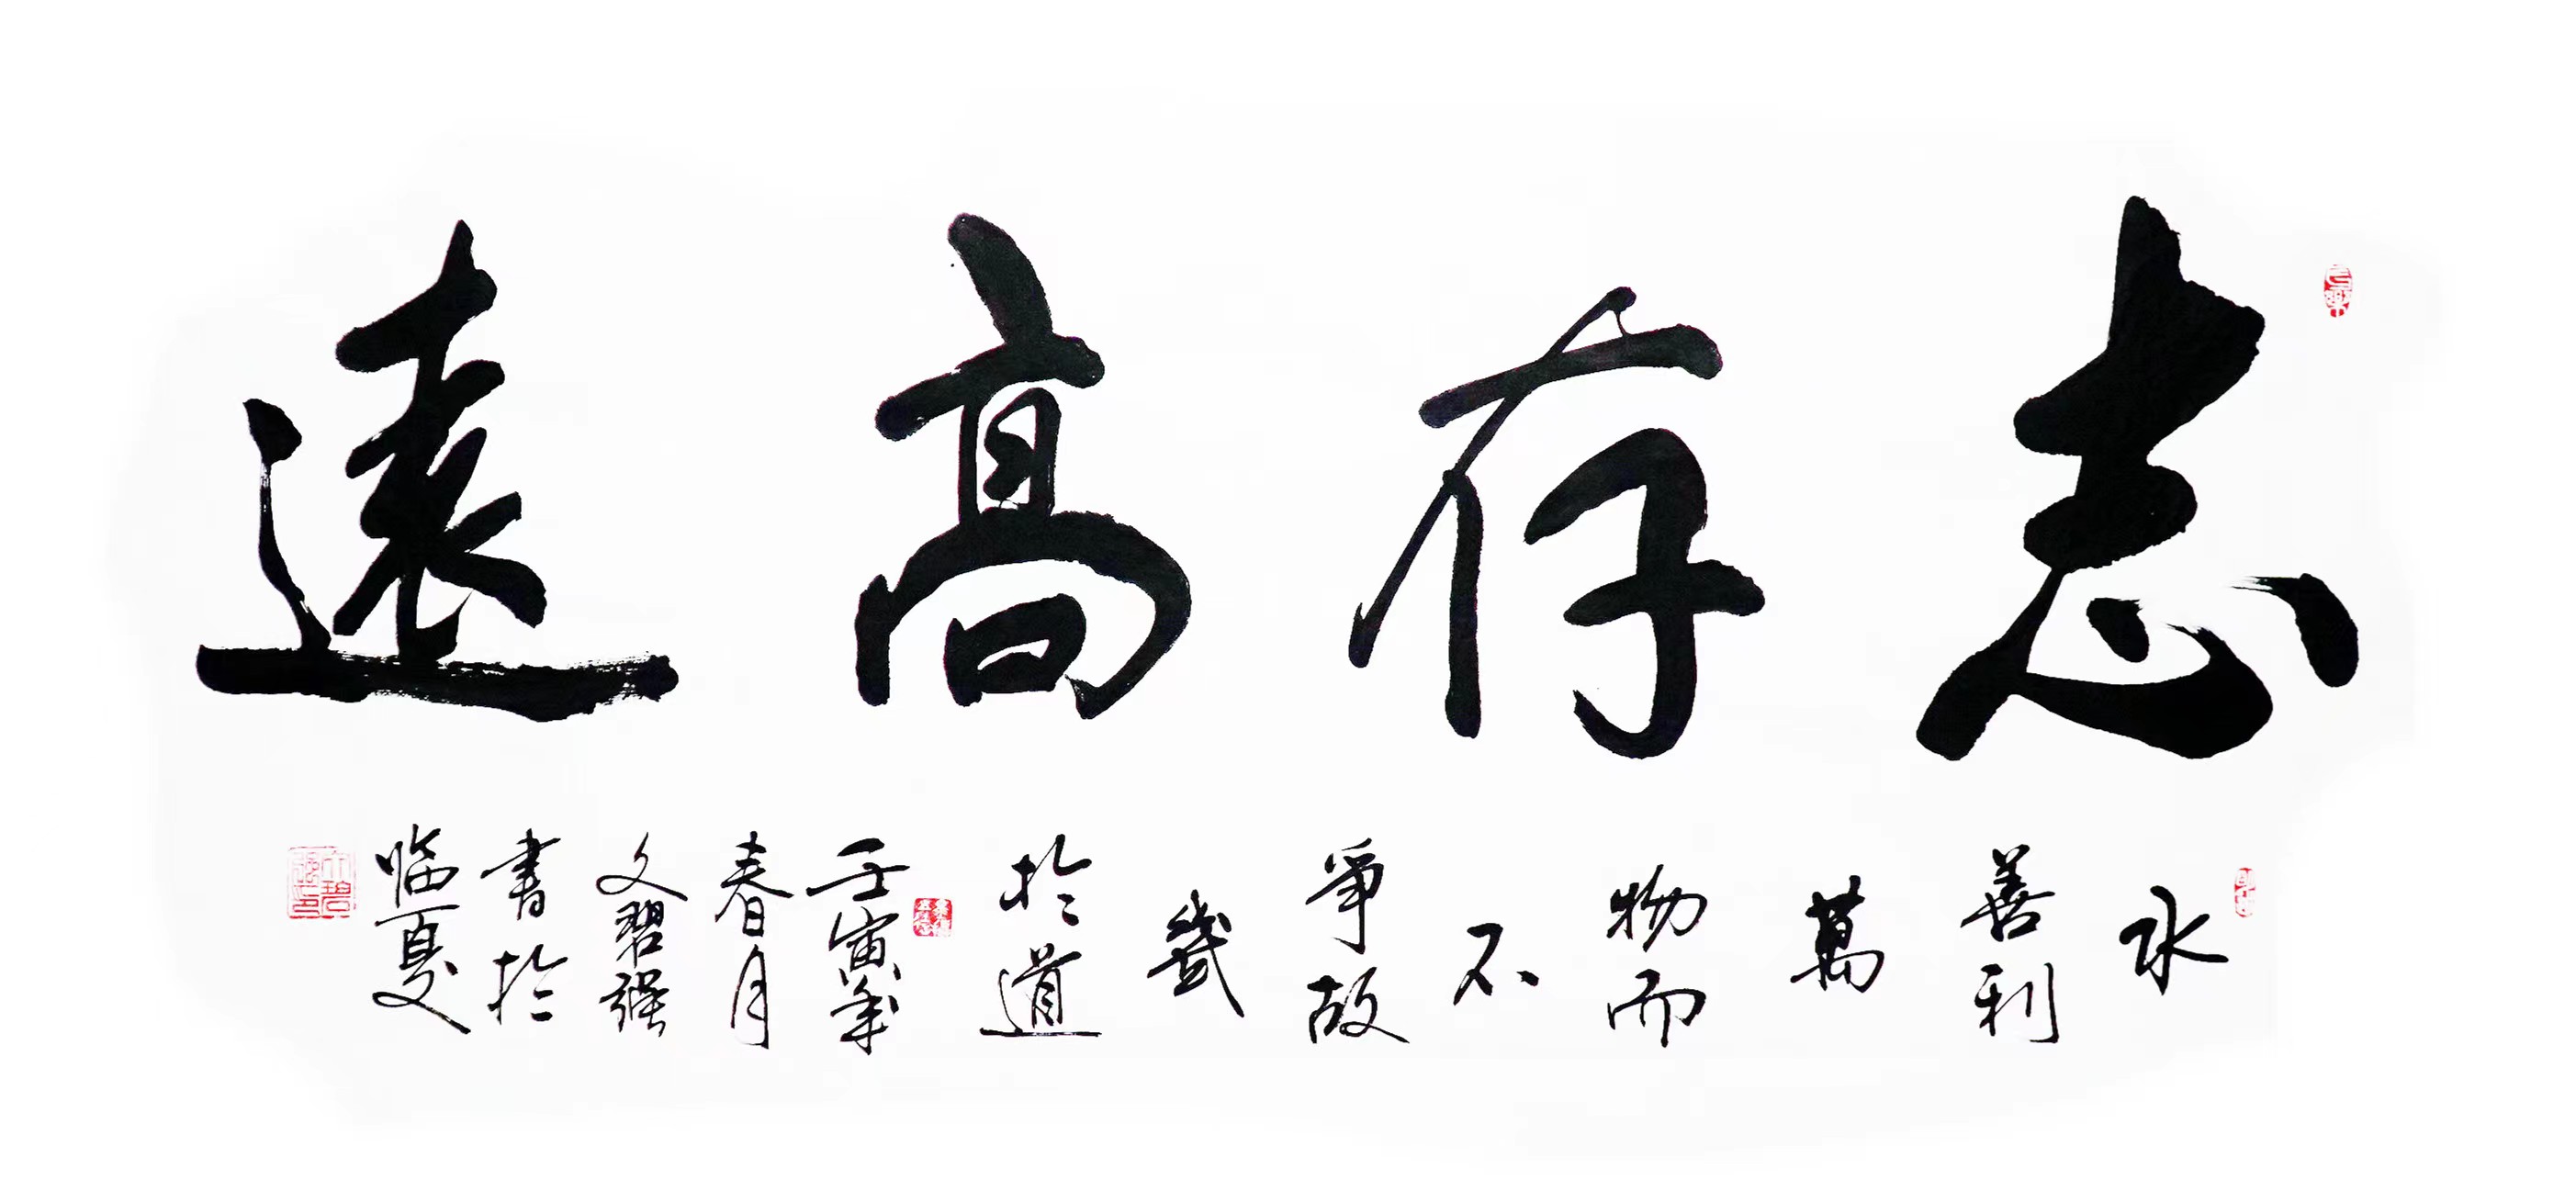 志存高遠
水善利萬物而不爭故幾於道
壬寅年
春月
文碧強
書於
临夏